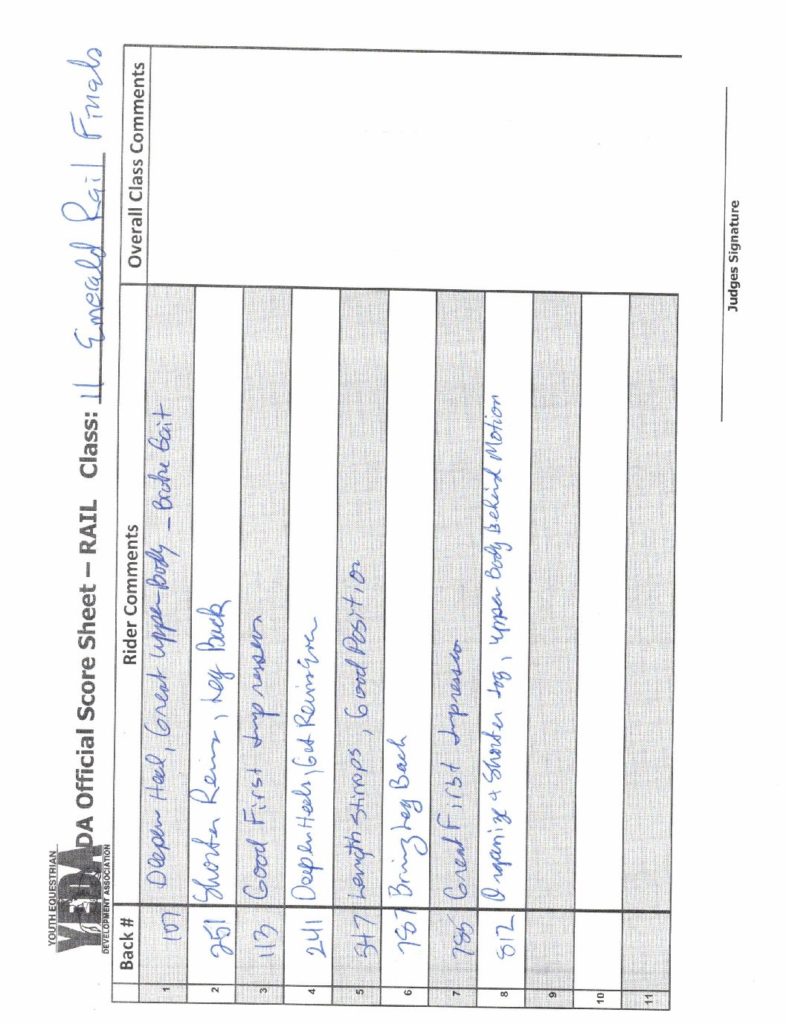 YOUTH EQUESTRIAN
YEDA
DEVELOPMENT ASSOCIATION
DA Official Score Sheet – RAIL Class: 11 Emerald Rail Finals
Back # Rider Comments Overall Class Comments
1 107 Deepen Heel, Great upper Body - Broke Gait
2 251 Shorten Reins, Leg Back
3 113 Good First Impression
4 241 Deepen Heels, Get Reins Even
5 547 Length Stirrups, Good Position
6 787 Bring Leg Back
7 785 Great First Impression
8 812 Organize & Shorten Jog, upper Body Behind Motion
9
10
11
Judges Signature